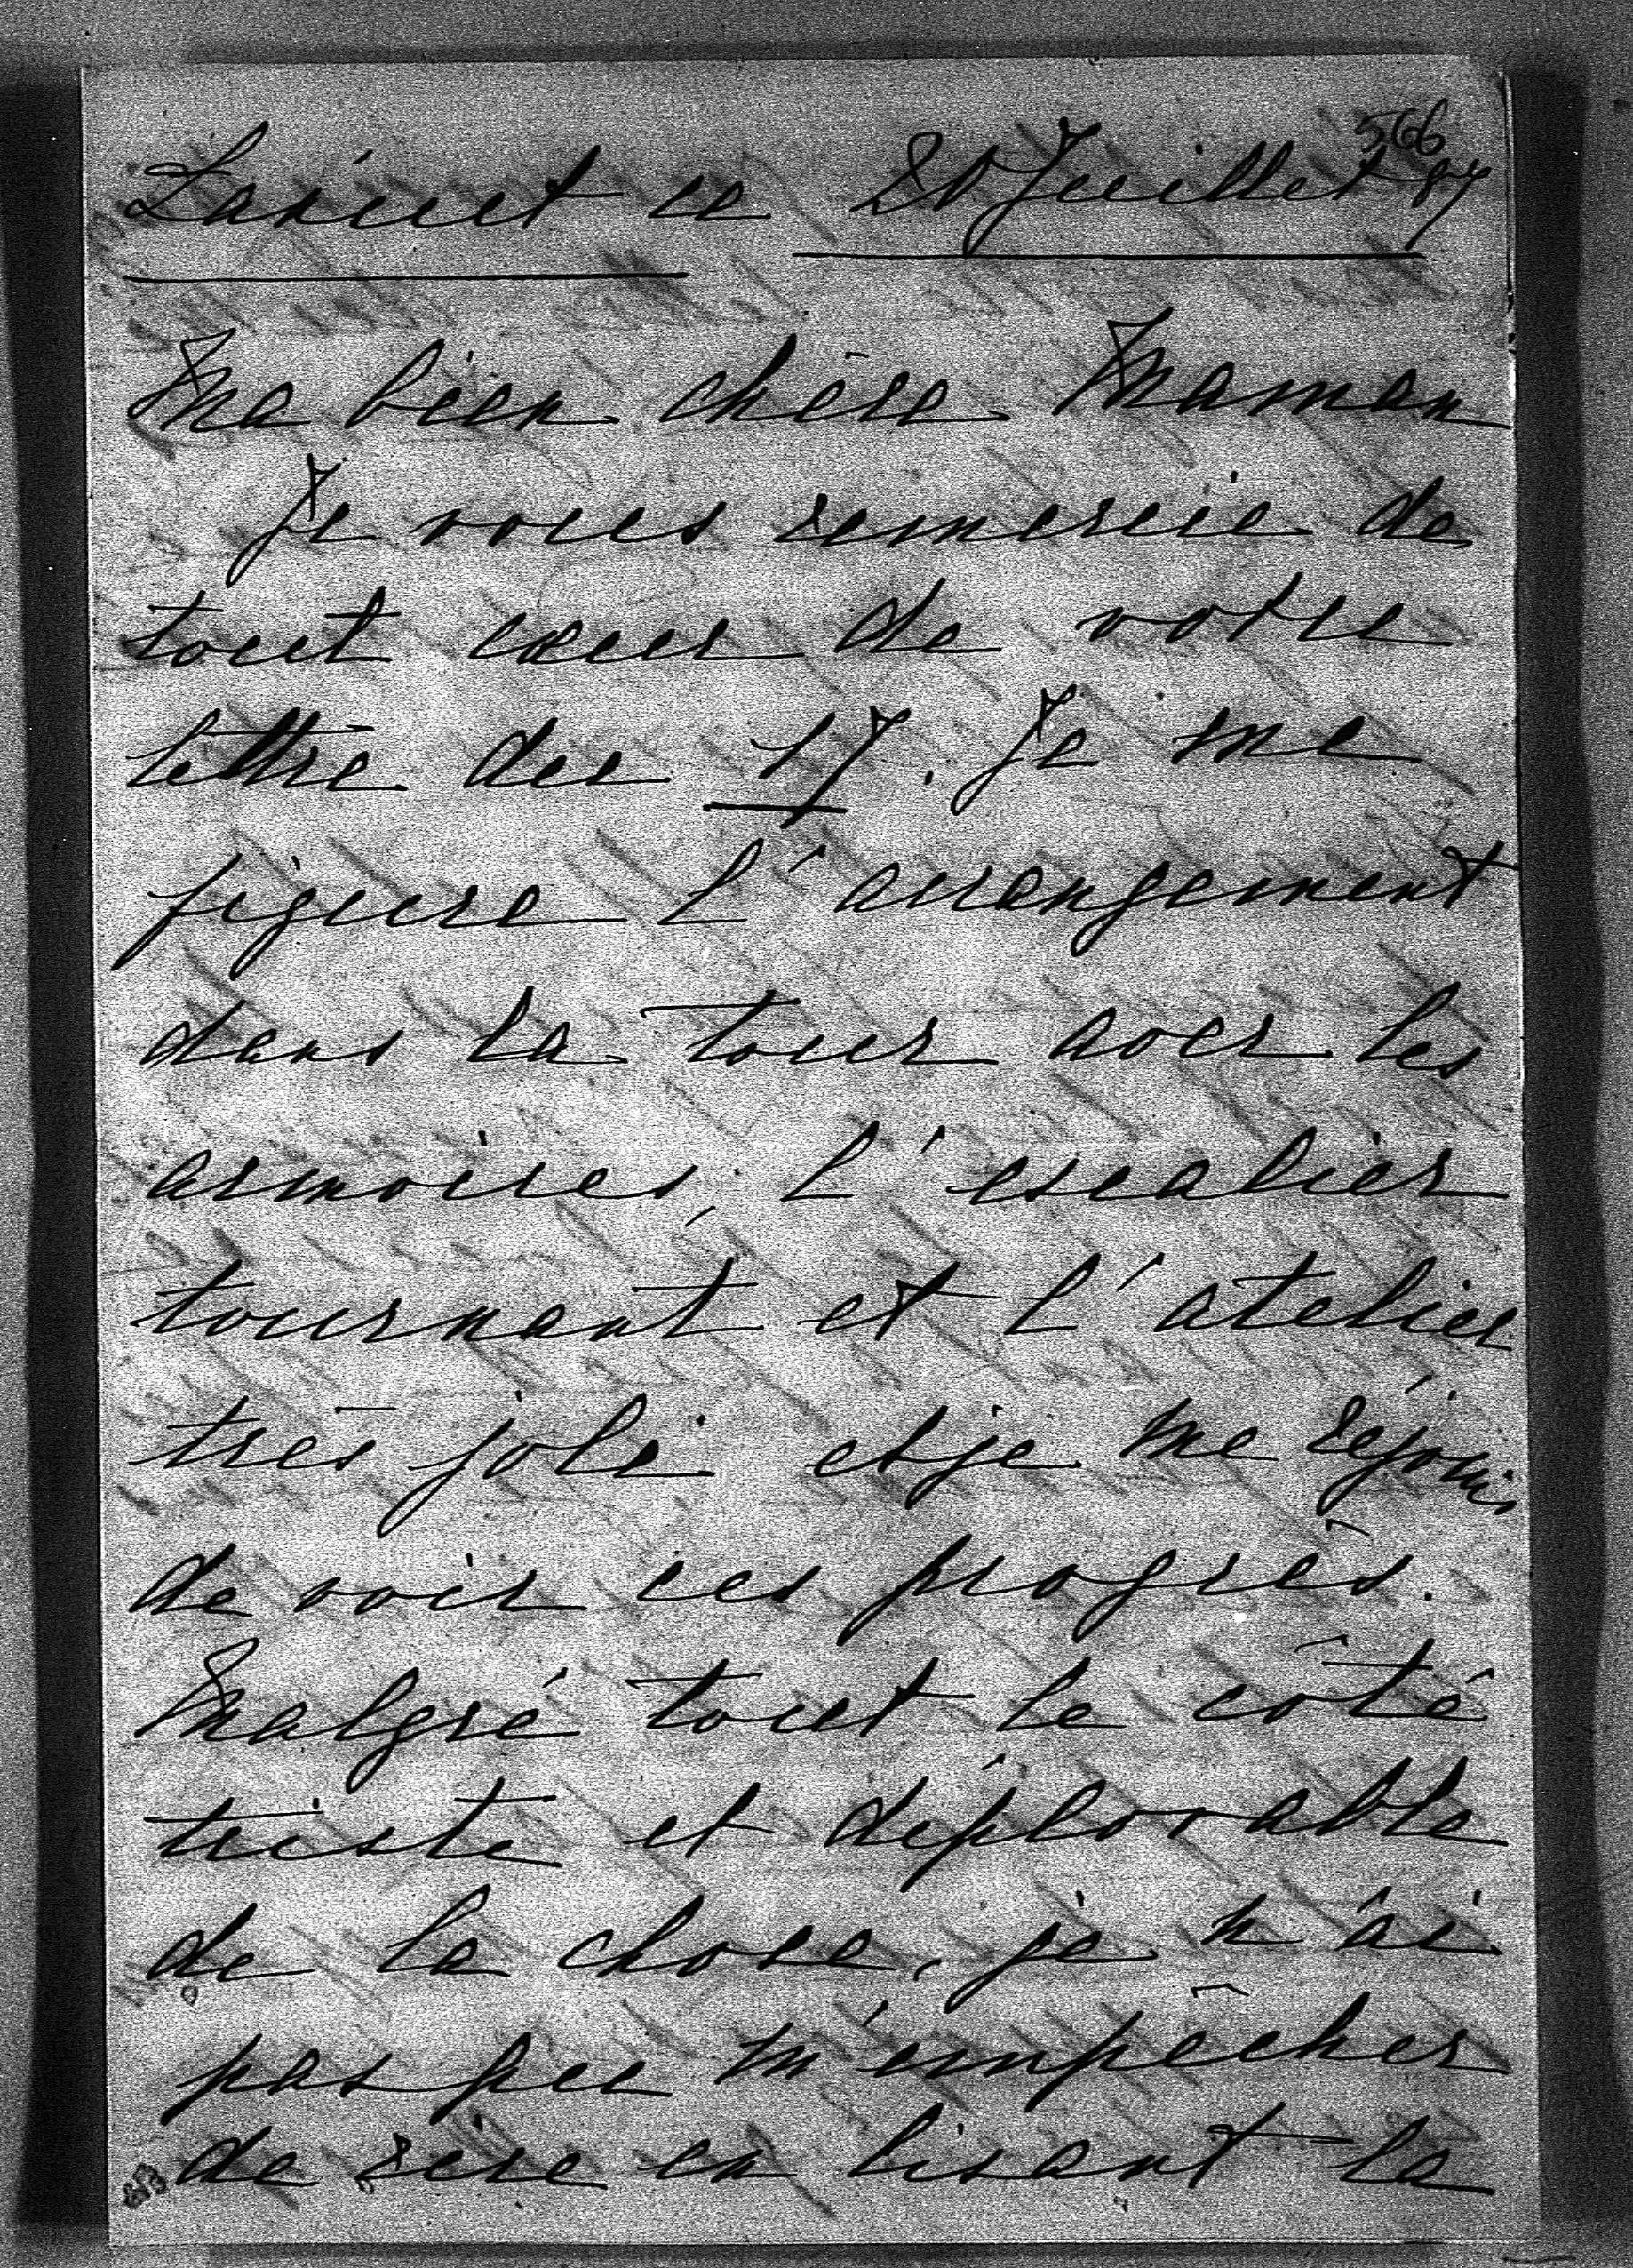 566
ce 20 Juillet 87
Ma bien chère Maman
Je vous remercie de
tout cœur de votre
lettre du 17. Je me
figure l'arrangement
dans la tour avec les
armoires, l'escalier
tournant et l'atelier
très joli et je me réjouis
de voir ces progrès.
Malgré tout le côté
triste et déplorable
de la chose, je n'ai
pas pu m'empêcher
de rire en lisant la